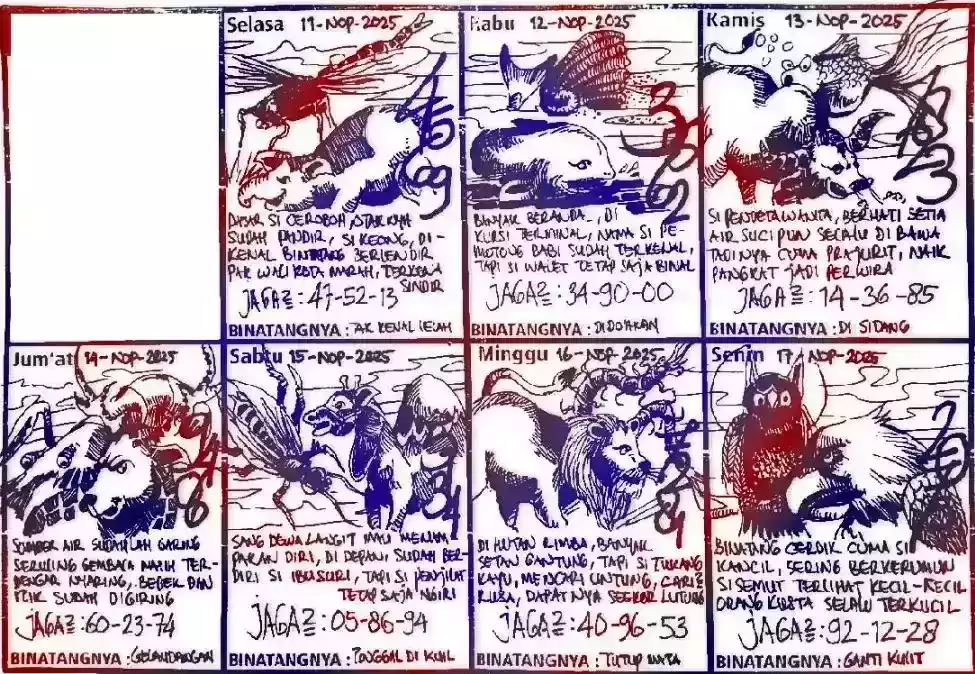 Selasa 11-NOP-2025
DASAR SI CEROBOH, OTAKNYA
SUDAH PANDIR, SI KEONG, DI-
KENAL BINATANG BERLENDIR
PAK WALI KOTA MARAH, TERKENA
SINDIR
JAGA2 : 47-52-13
BINATANGNYA : TAK KENAL LELAH
Rabu 12-NOP-2025
BANYAK BERANDA, DI
KURSI TERMINAL, NAMA SI PE-
MOTONG BABI SUDAH TERKENAL,
TAPI SI WALET TETAP SAJA BINAL
JAGA2 : 34-90-00
BINATANGNYA : DIDOAKAN
Kamis 13-NOP-2025
SI PENDETA WANITA, BERHATI SETIA
AIR SUCI PUN SELALU DI BAWA
TADINYA CUMA PRAJURIT, NAIK
PANGKAT JADI PERWIRA
JAGA2 : 14-36-85
BINATANGNYA : DI SIDANG
Jum'at 14-NOP-2025
SUMBER AIR SUDAHLAH GARING
SERULING GEMBALA MASIH TER-
DENGAR NYARING, BEBEK DAN
ITIK SUDAH DIGIRING
JAGA2 : 60-23-74
BINATANGNYA : GELANDANGAN
Sabtu 15-NOP-2025
SANG DEWA LANGIT MAU MENAM
PAKAN DIRI, DI DEPAN, SUDAH BER-
DIRI SI IBU SURI, TAPI SI PENJILAT
TETAP SAJA NGIRI
JAGA2 : 05-86-94
BINATANGNYA : TONGGAL DI KUIL
Minggu 16-NOP-2025
DI HUTAN RIMBA, BANYAK
SETAN GANTUNG, TAPI SI TUKANG
KAYU, MENCARI UNTUNG, CARI2
RUSA, DAPATNYA SEEKOR LUTUNG
JAGA2 : 40-96-53
BINATANGNYA : TUTUP MATA
Senin 17-NOP-2025
BINATANG CERDIK CUMA SI
KANCIL, SERING BERKERUMUN
SI SEMUT TERLIHAT KECIL-KECIL
ORANG KUSTA SELALU TERKUCIL
JAGA2 : 92-12-28
BINATANGNYA : GANTI KULIT